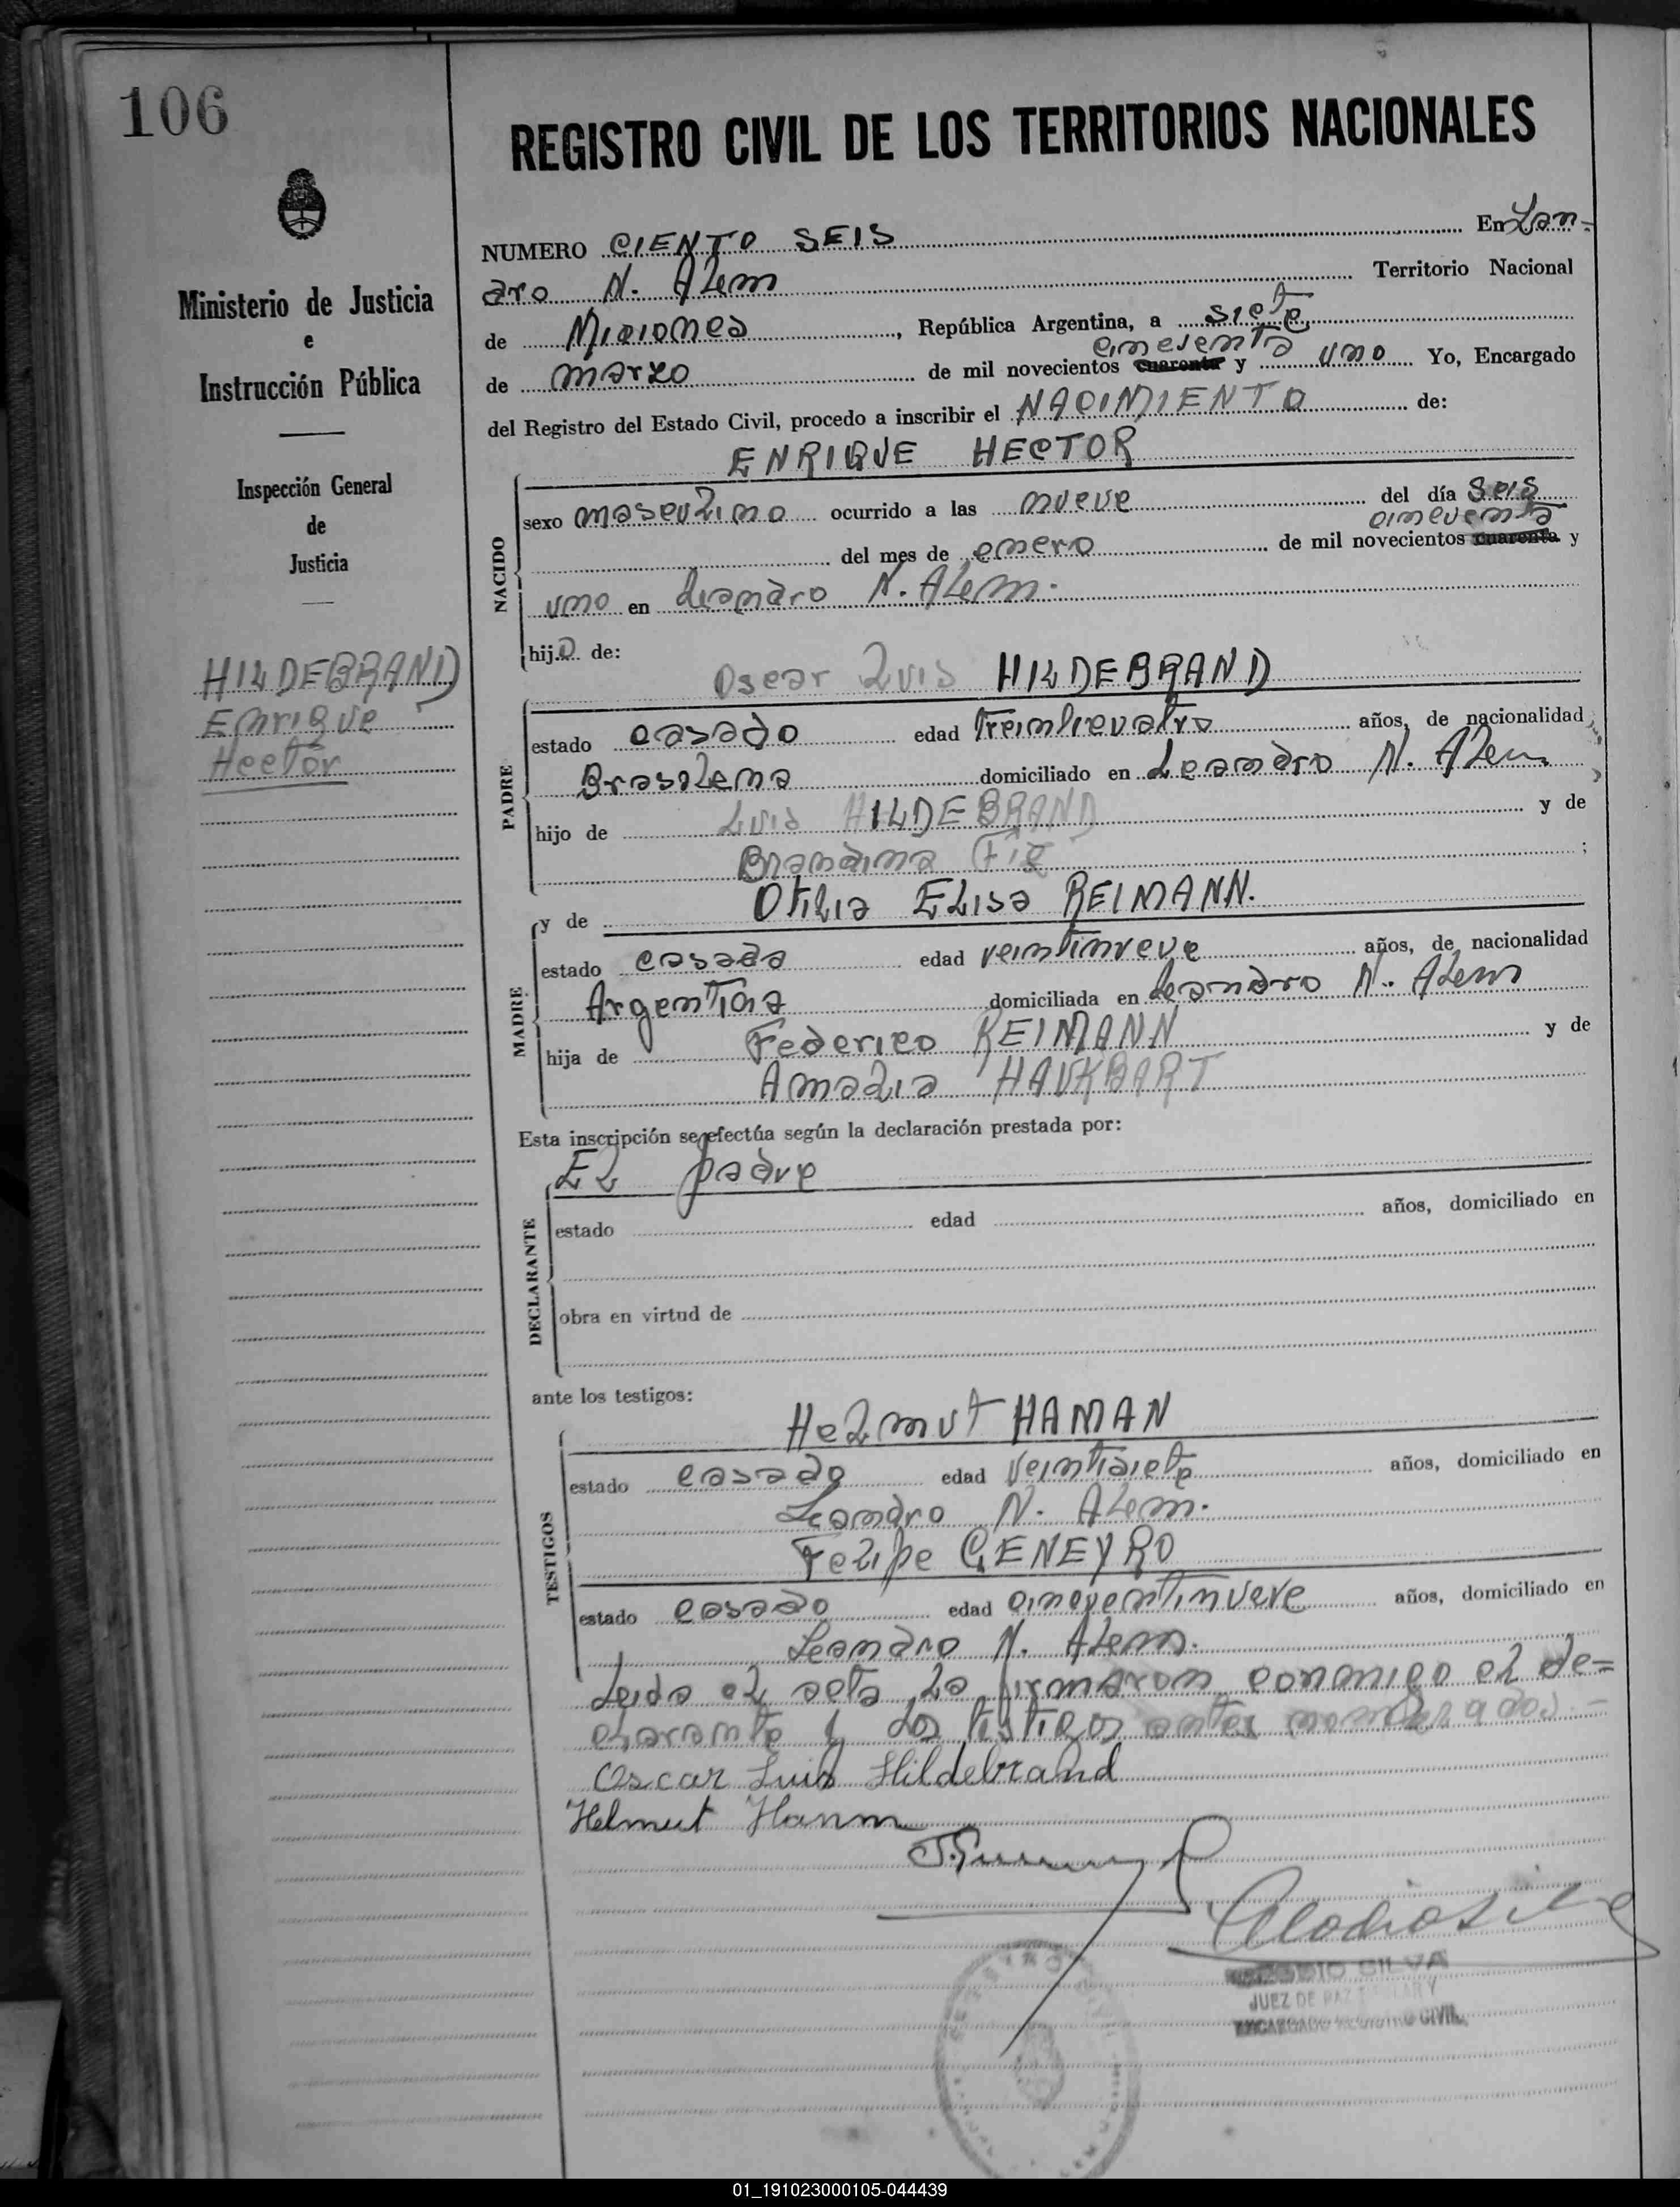 106
REGISTRO CIVIL DE LOS TERRITORIOS NACIONALES
Ministerio de Justicia
e
Instrucción Pública
Inspección General
de
Justicia
HILDEBRAND
Enrique
Hector
NUMERO CIENTO SEIS En Lan-
dro N. Alem Territorio Nacional
de Misiones, República Argentina, a siete
cincuenta
de marzo de mil novecientos cuarenta y uno Yo, Encargado
del Registro del Estado Civil, procedo a inscribir el NACIMIENTO de:
ENRIQUE HECTOR
NACIDO
sexo masculino ocurrido a las nueve del día seis
cincuenta
del mes de enero de mil novecientos cuarenta y
uno en Leandro N. Alem.
hijo de:
Oscar Luis HILDEBRAND
PADRE
estado casado edad treinticuatro años, de nacionalidad
Brasilena domiciliado en Leandro N. Alem
hijo de Luis HILDEBRAND y de
Brandina Fig ;
y de Otilia Elisa REIMANN.
MADRE
estado casada edad veintinueve años, de nacionalidad
Argentina domiciliada en Leandro N. Alem
hija de Federico REIMANN y de
Amalia HAUKBART
Esta inscripción se efectúa según la declaración prestada por:
El padre
DECLARANTE
estado edad años, domiciliado en
obra en virtud de
ante los testigos:
Helmut HAMAN
TESTIGOS
estado casado edad veintisiete años, domiciliado en
Leandro N. Alem.
Felipe GENEYRO
estado casado edad cincuentinueve años, domiciliado en
Leandro N. Alem.
Leida el acta la firmaron conmigo el de=
clarante y los testigos antes nombrados.-
Oscar Luis Hildebrand
Helmut Hanm
CLODIO SILVA
JUEZ DE PAZ TITULAR Y
ENCARGADO REGISTRO CIVIL
01_191023000105-044439